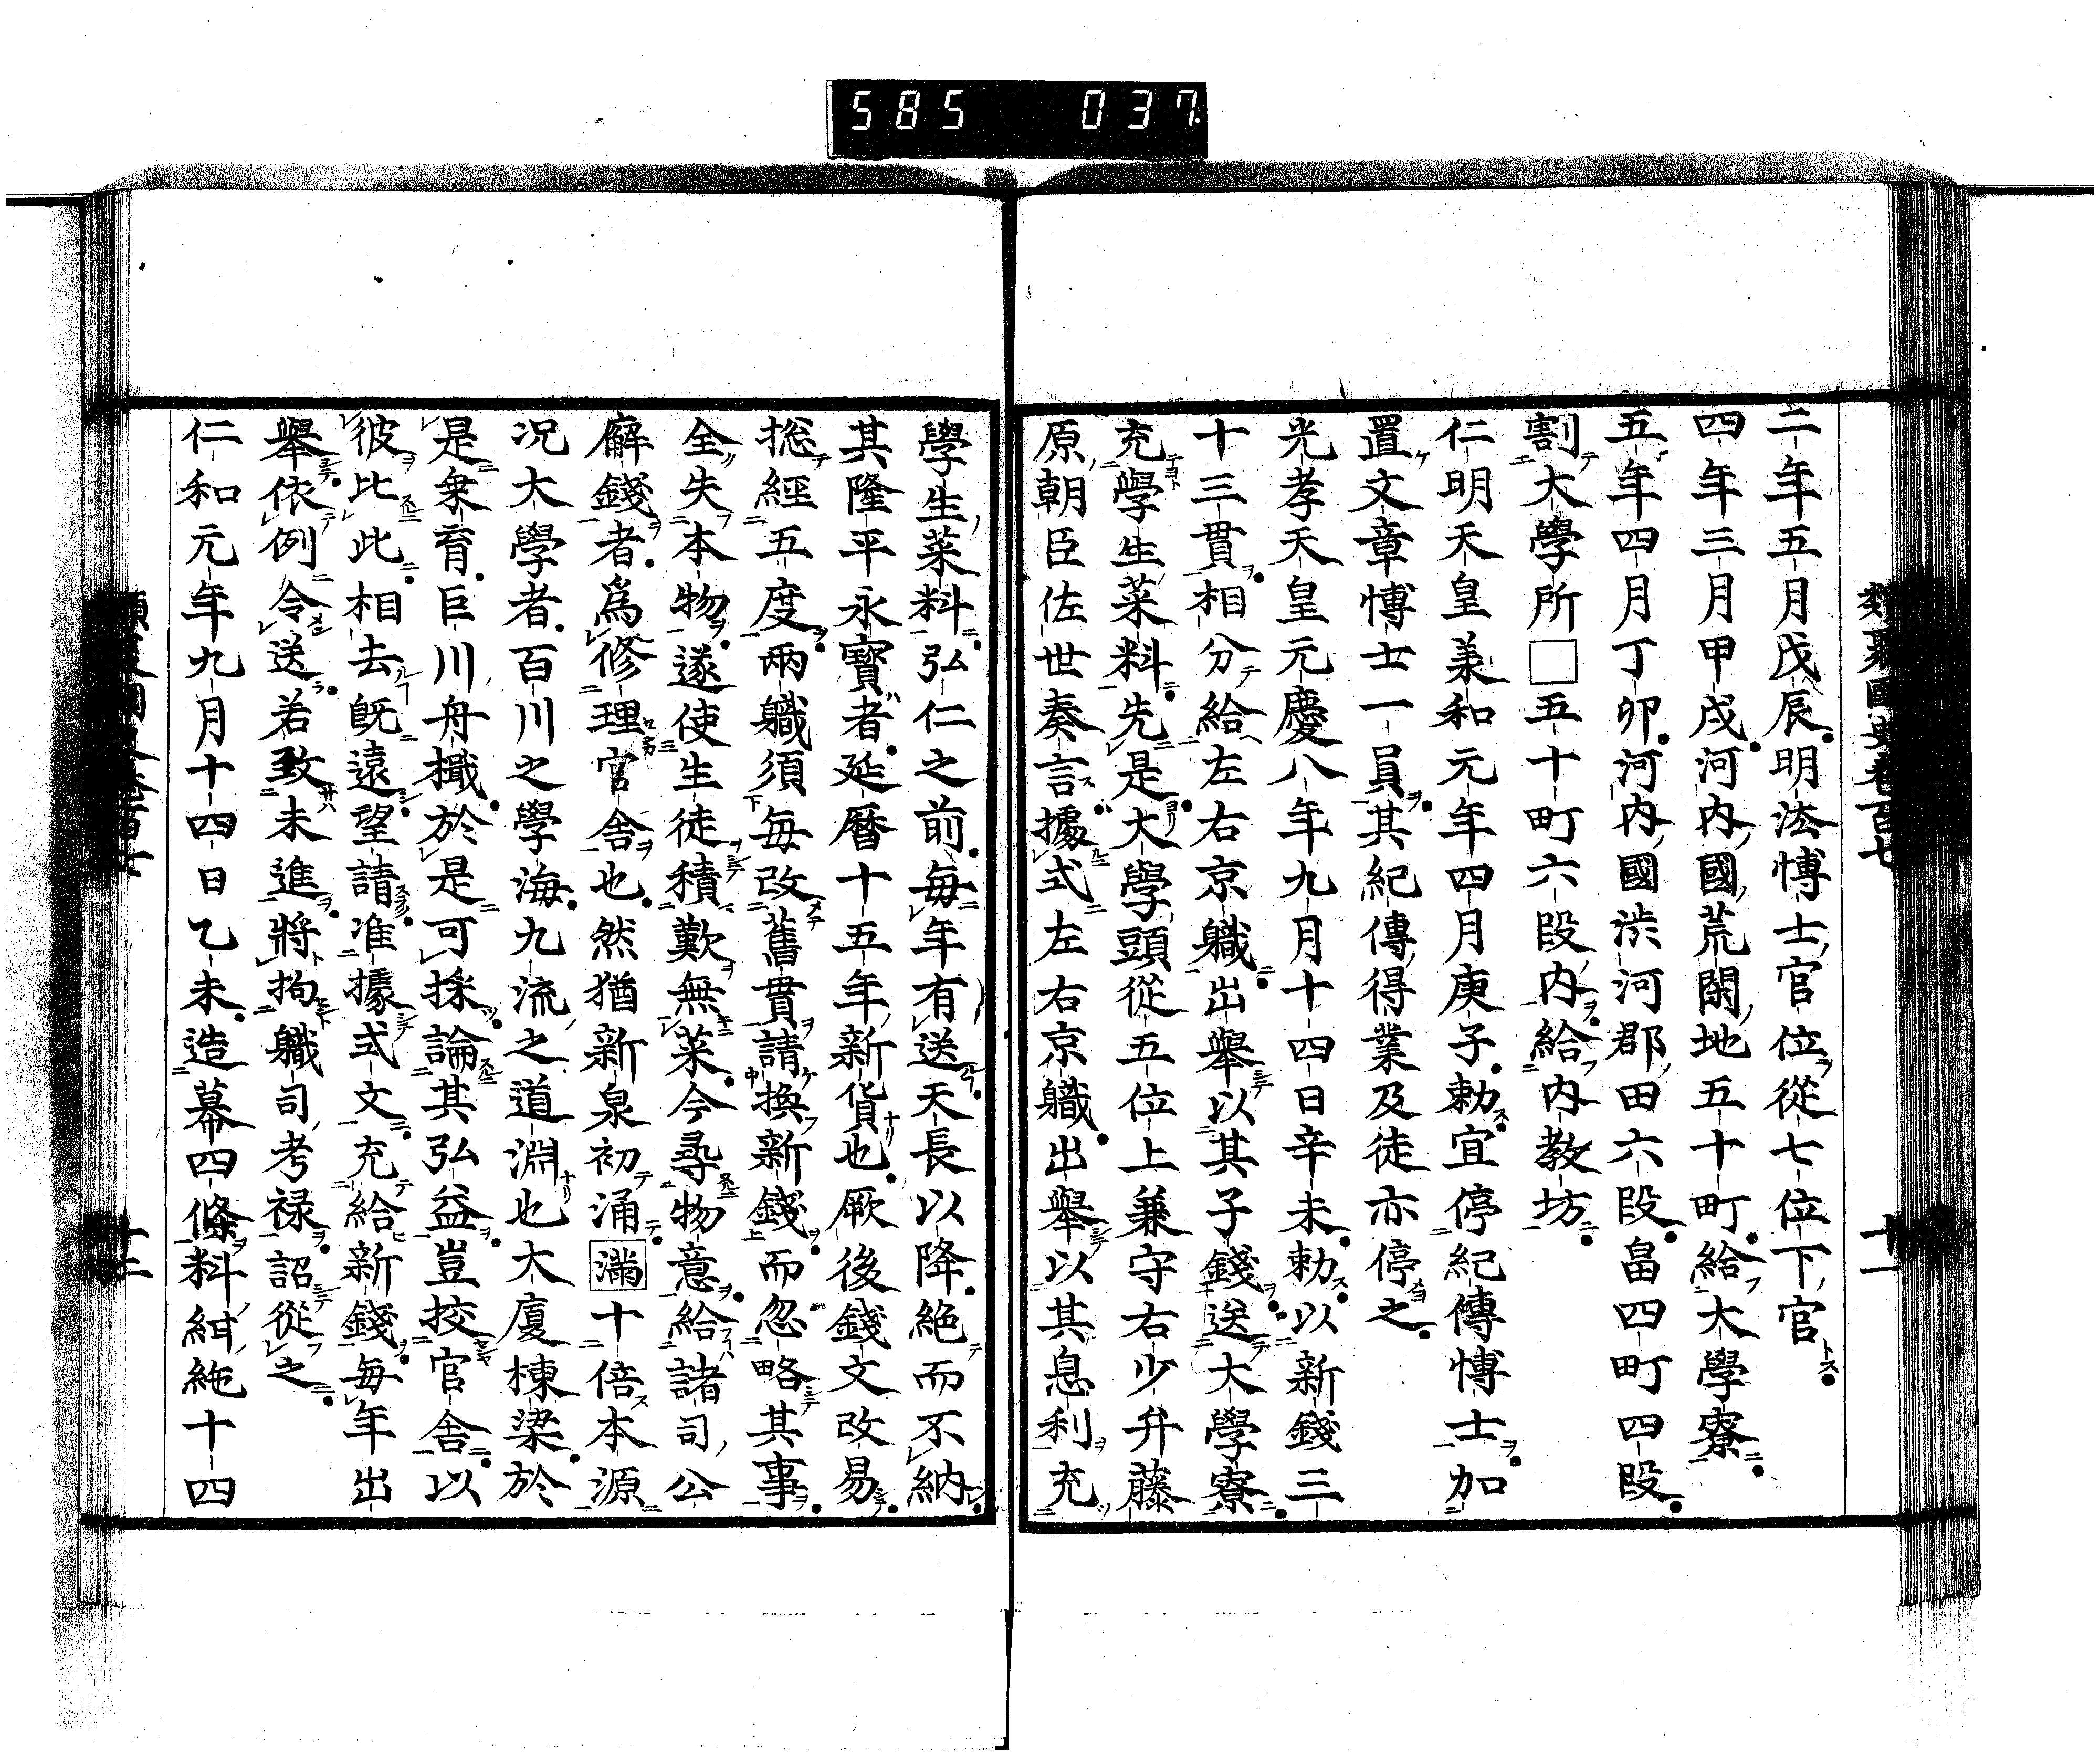 585 037
類聚國史卷百七 十一
二年五月戊辰明法博士官位從七位下官
四年三月甲戌河内國荒閑地五十町給大學寮
五年四月丁卯河内國渋河郡田六段畠四町四段
割大學所□五十町六段内給内教坊
仁明天皇美和元年四月庚子勅宜停紀傳博士加
置文章博士一員其紀傳得業及徒亦停之
光孝天皇元慶八年九月十四日辛未勅以新錢三
十三貫相分給左右京職出舉以其子錢送大學寮
充學生菜料先是大學頭從五位上兼守右少弁藤
原朝臣佐世奏言據式左右京職出舉以其息利充
學生菜料弘仁之前每年有送天長以降絶而不納
其隆平永寶者延曆十五年新貨也厥後錢文改易
揔經五度兩職須每改舊貫請換新錢而忽略其事
全失本物遂使生徒積歎無菜今尋物意給諸司公
廨錢者爲修理官舍也然猶新泉初涌滿十倍本源
况大學者百川之學海九流之道淵也大廈棟梁於
是衆育巨川舟檝於是可採論其弘益豈挍官舍以
彼比此相去既遠望請准據式文充給新錢每年出
舉依例令送若致未進將拘職司考禄詔從之
仁和元年九月十四日乙未造幕四條料紺絁十四